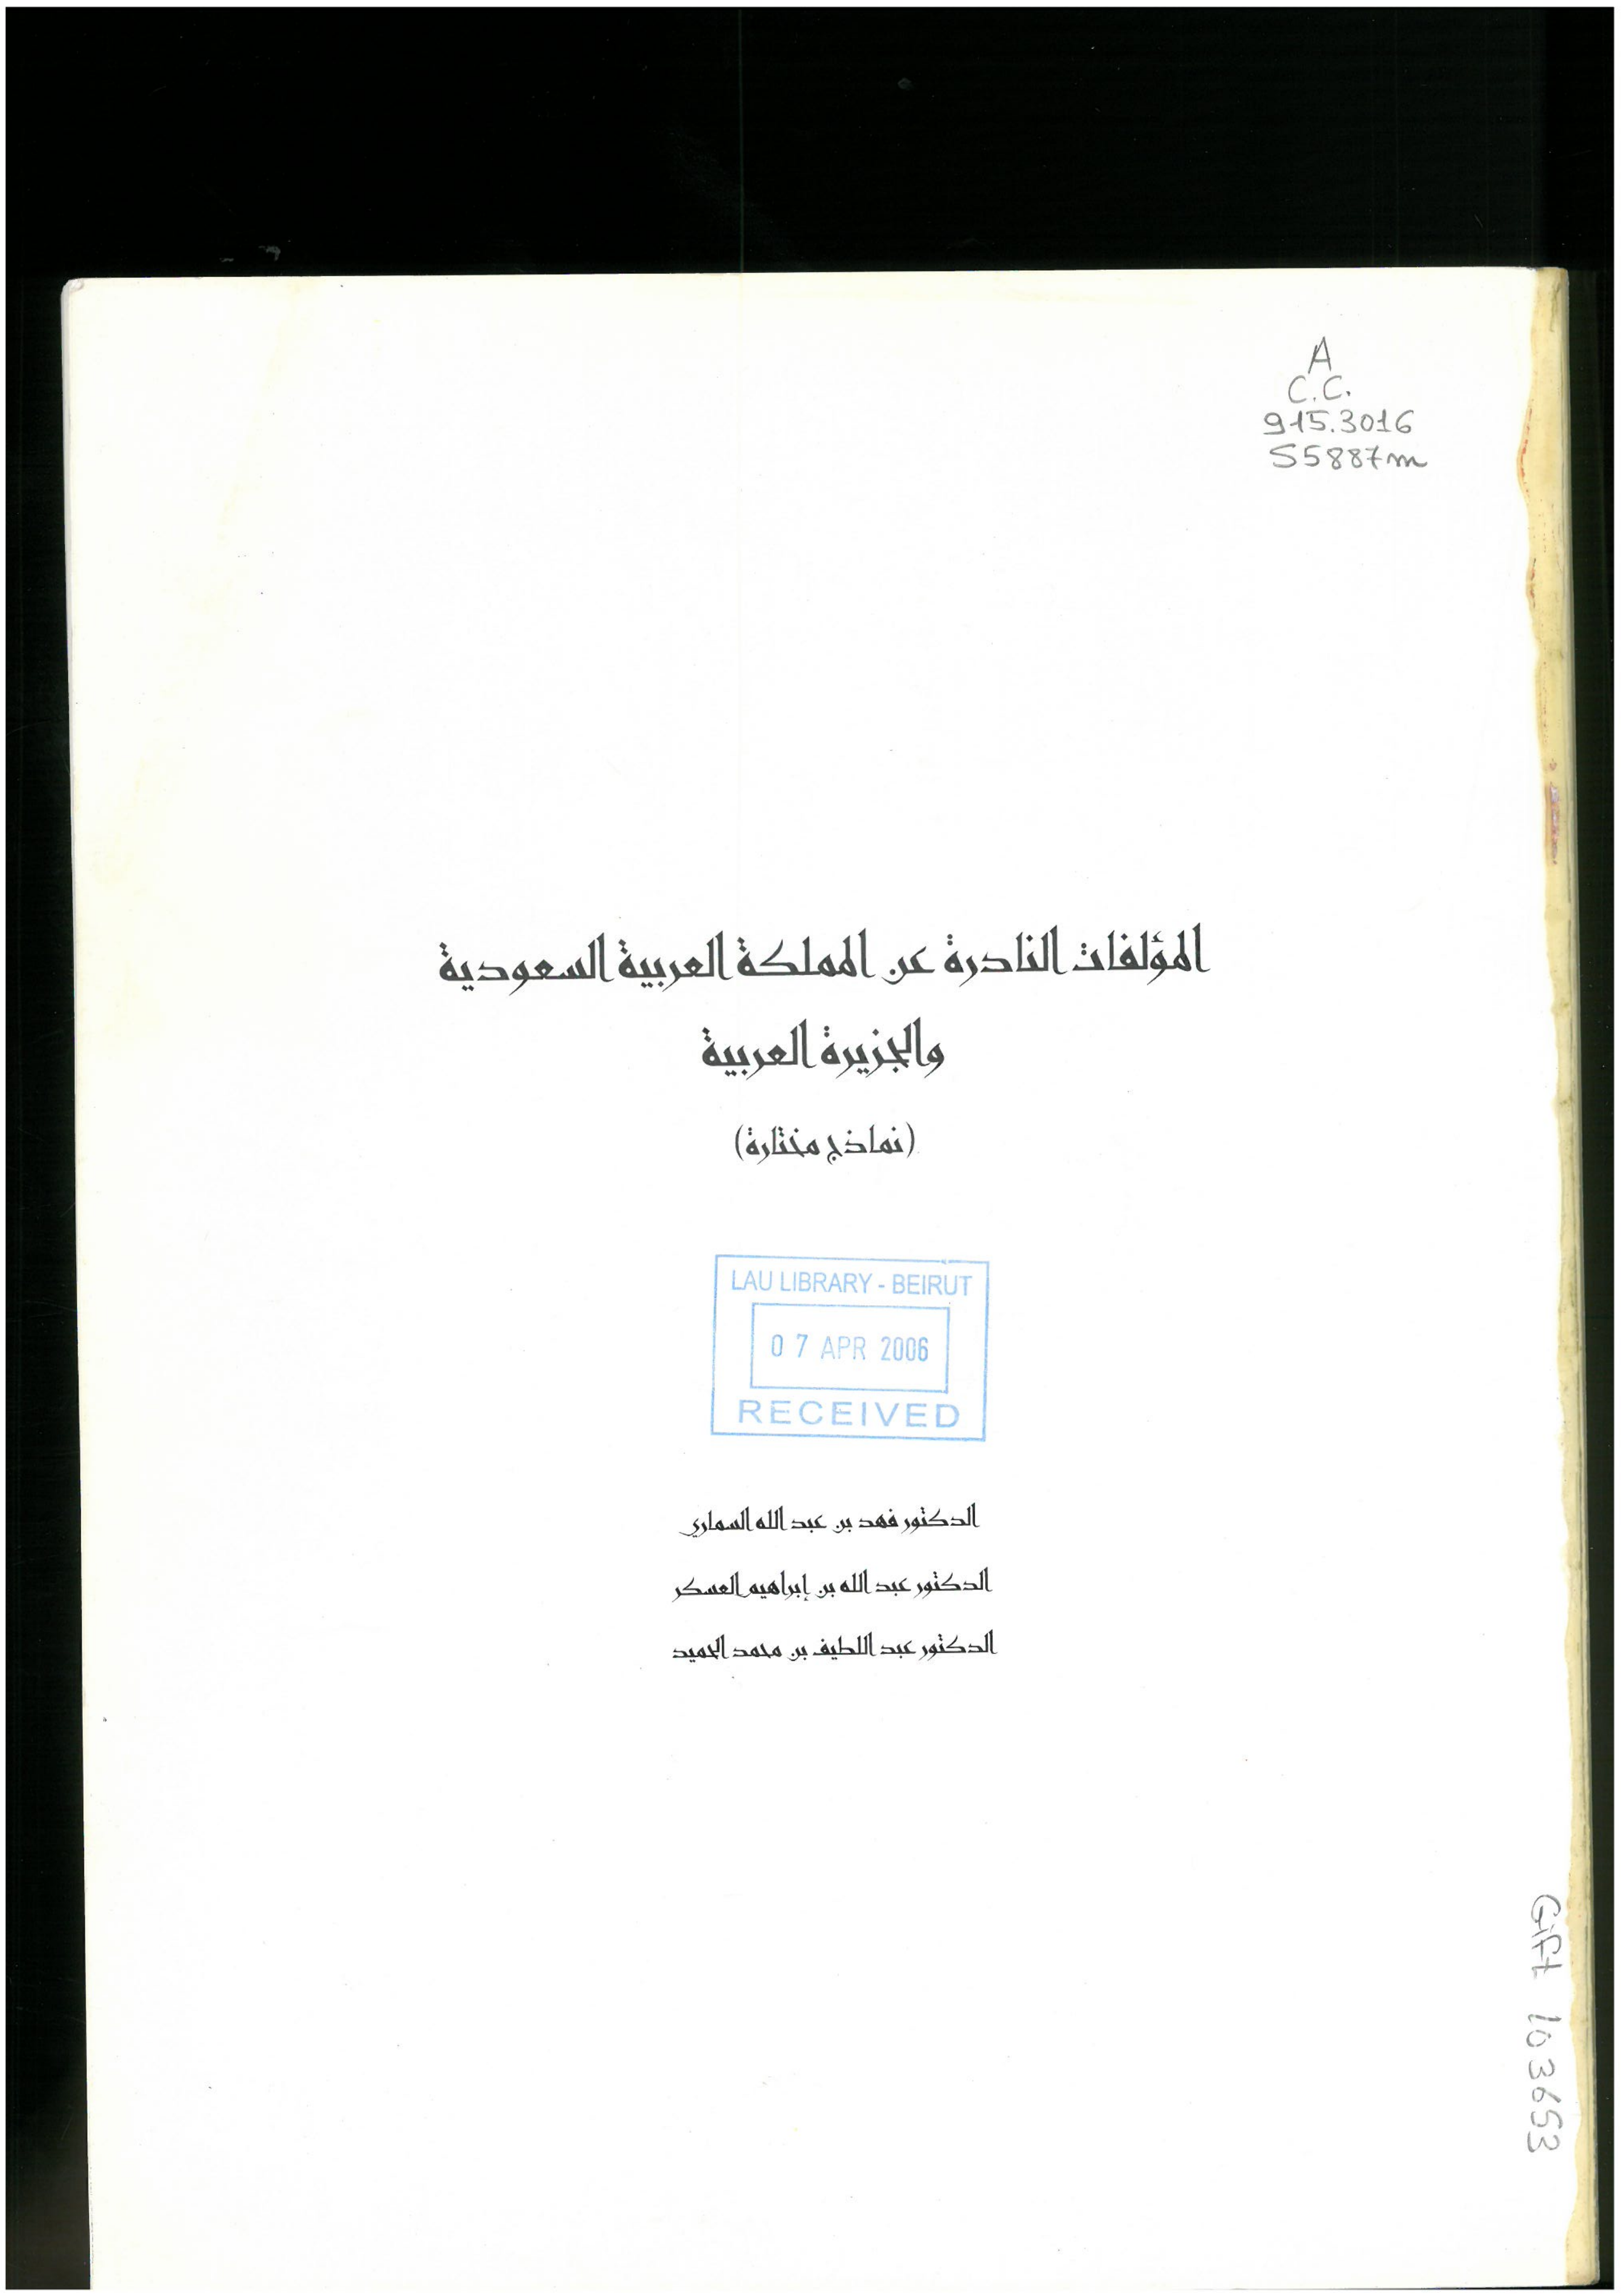 A
C.C.
915.3016
S5887m
المؤلفات النادرة عن المملكة العربية السعودية
والجزيرة العربية
(نماذج مختارة)
LAU LIBRARY - BEIRUT
07 APR 2006
RECEIVED
الدكتور فهد بن عبد الله السماري
الدكتور عبد الله بن إبراهيم العسكر
الدكتور عبد اللطيف بن محمد الحميد
Gift 103653